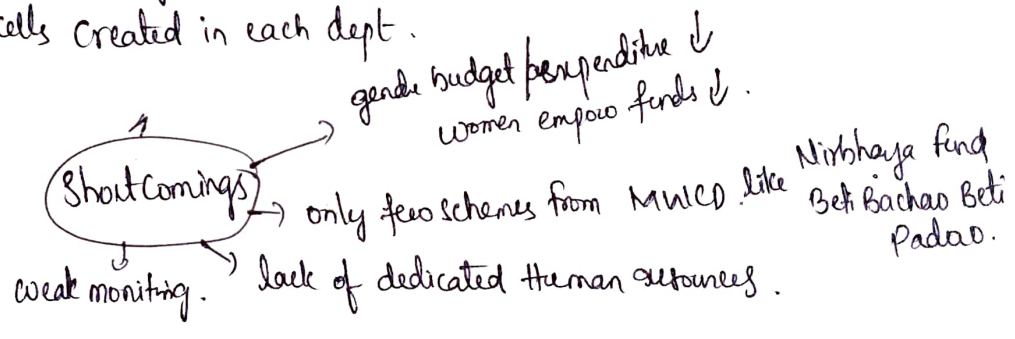 cells created in each dept.
gende budget expenditure ↓
women empow funds ↓.
Shoutcomings
only few schemes from MWCD like Nirbhaya fund
Beti Bachao Beti
Padao.
weak moniting.
lack of dedicated Human resources.